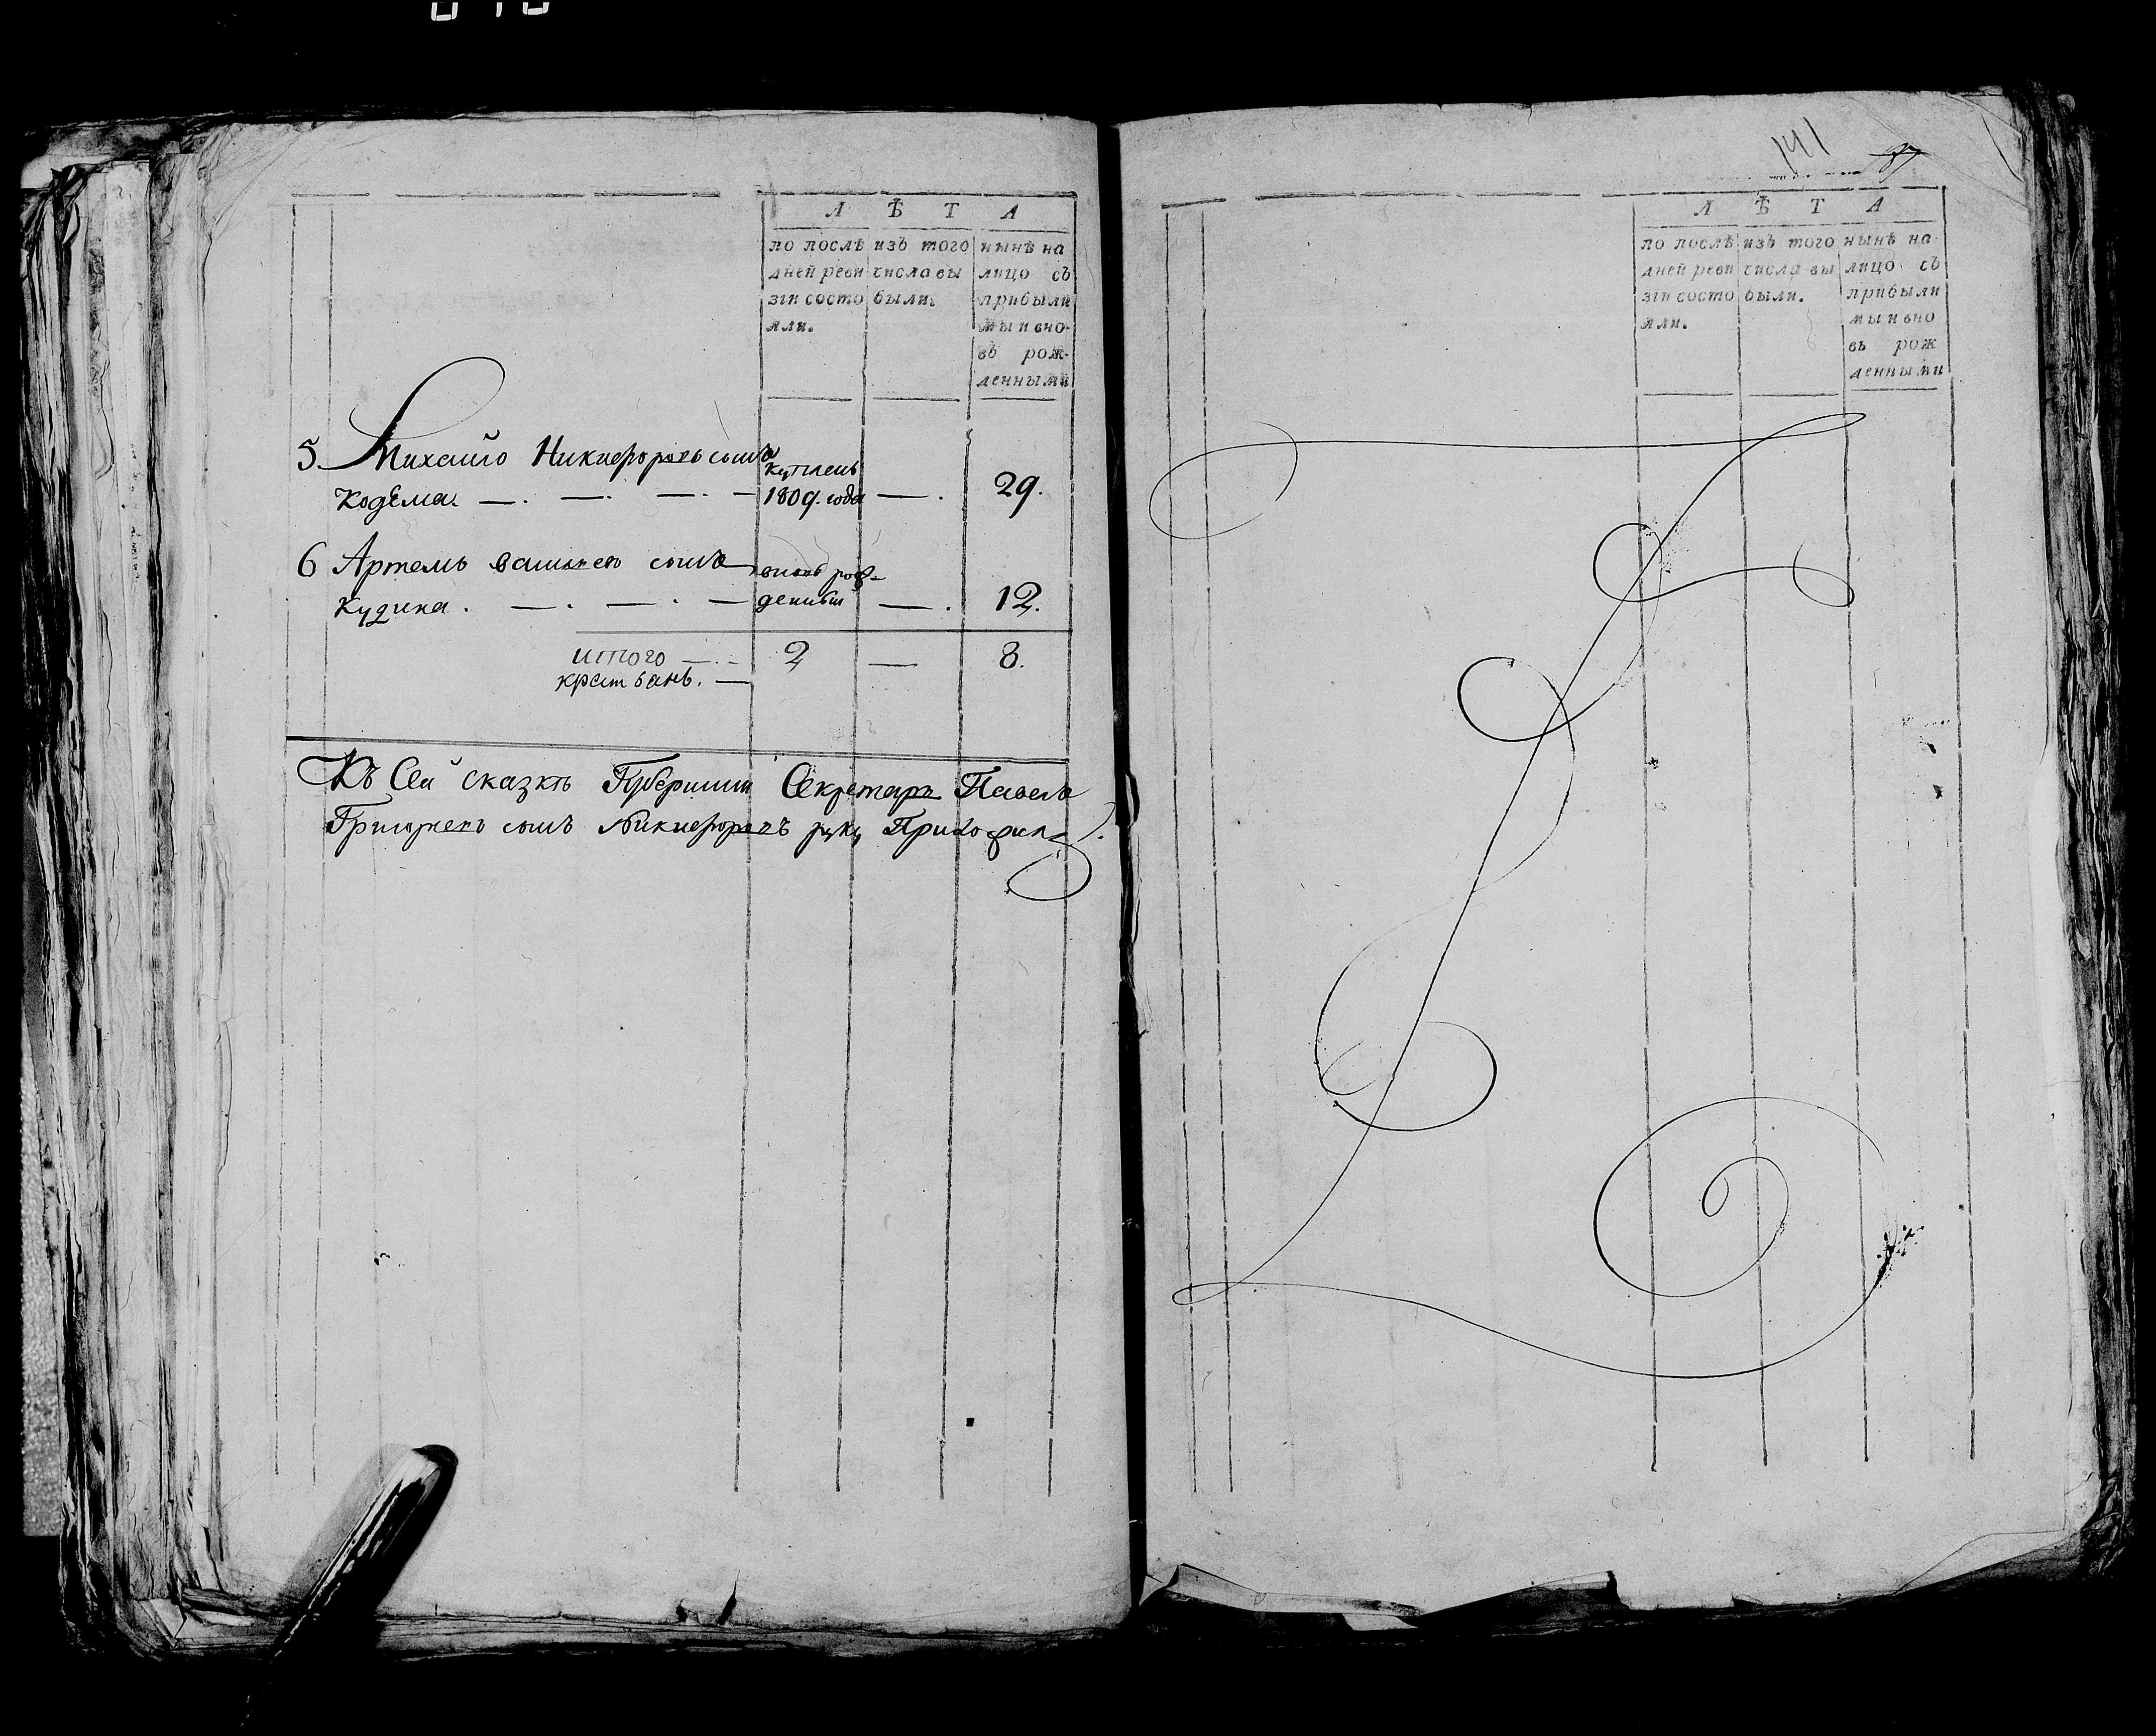 Л Ѣ Т А
по послѣ
дней реви
зіи состо
яли.
изъ того
числа вы
были.
нынѣ на
лицо съ
прибыли
мы и вно-
въ рож-
денными
5. Михайло Никифоровъ сынъ купленъ
Кодема. — . — . — . — 1809. года — . 29.
6 Артемъ сынъ вновь рож-
Кудина . — . — . — денный — . 12.
итого — . — 2 — 8.
крестьянъ. —
Къ Сей сказкѣ Губернши Секретарь Павелъ
Григорьевъ сынъ Никифоровъ руку Приложилъ.
141
Л Ѣ Т А
по послѣ
дней реви
зіи состо
яли.
изъ того
числа вы
были.
нынѣ на
лицо съ
прибыли
мы и вно
въ рож
денными